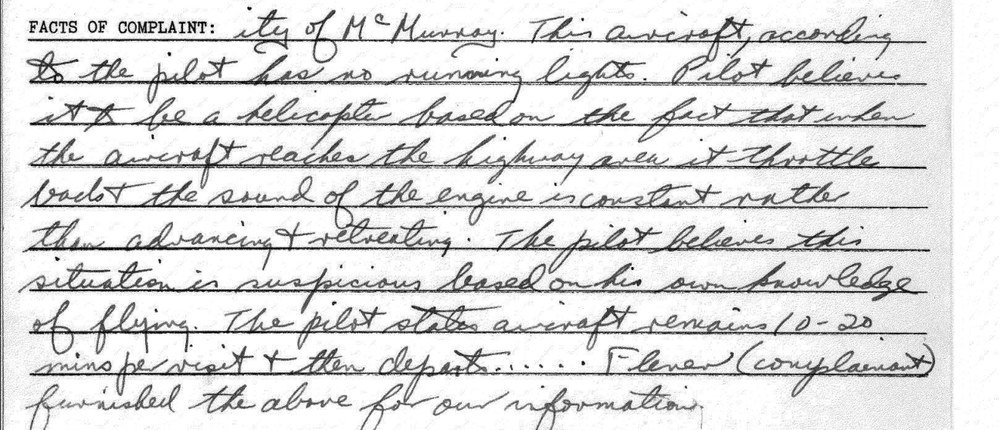 FACTS OF COMPLAINT: ity of McMurray. This aircraft, according
to the pilot has no running lights. Pilot believes
it to be a helicopter based on the fact that when
the aircraft reaches the highway area it throttle
back & the sound of the engine is constant rather
than advancing & retreating. The pilot believes this
situation is suspicious based on his own knowledge
of flying. The pilot states aircraft remains 10-20
mins per visit & then departs...... (complainant)
furnished the above for our information.